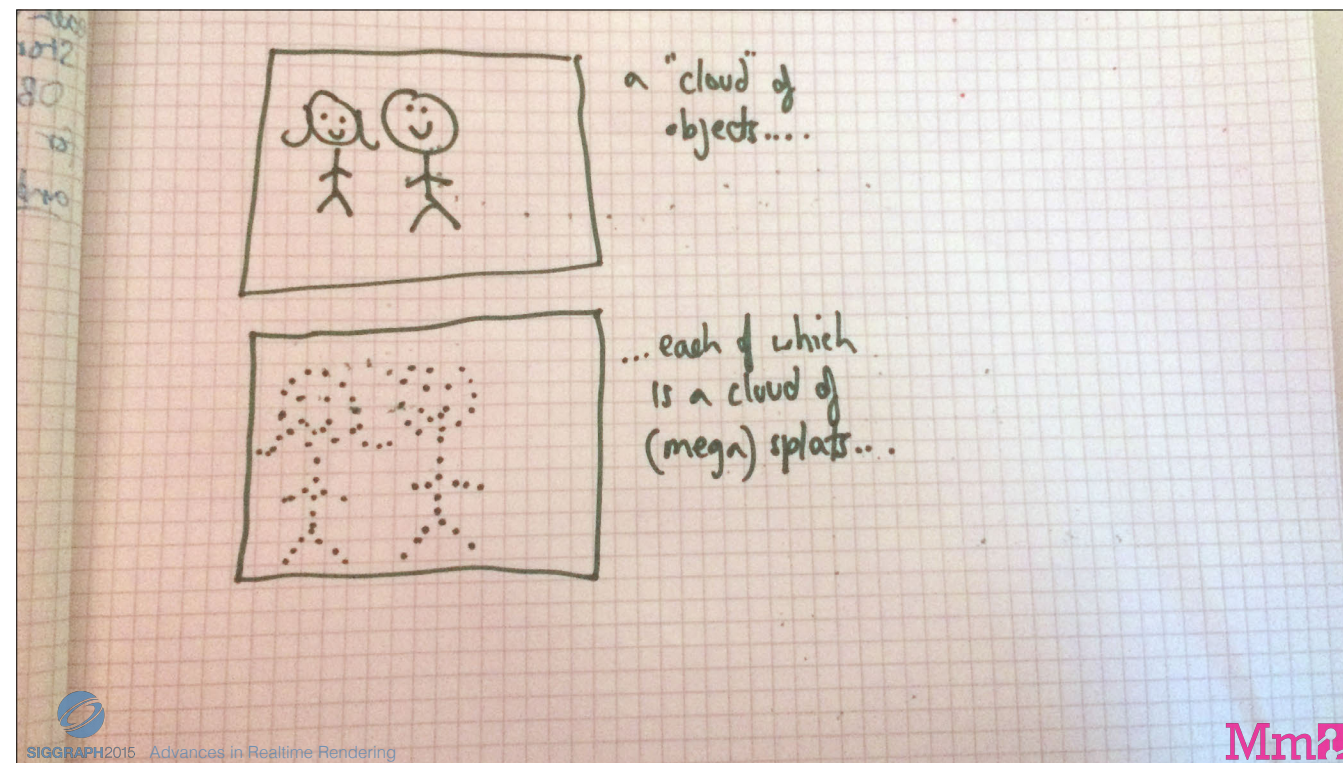 a "cloud" of
objects....
...each of which
is a cloud of
(mega) splats....
SIGGRAPH2015 Advances in Realtime Rendering
Mm